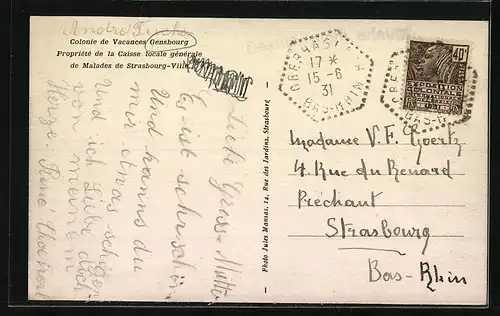 André Fuchs
Colonie de Vacances Gensbourg
Propriété de la Caisse locale générale
de Malades de Strasbourg-Ville
Liebi Gross-Mutter
Es ist sehr schön
Und kanns du
mir etwas schigen
Und ich Liebe dich
von meinem
Herze. René
Photo Jules Mannas, 14, Rue des Jardins, Strasbourg
OBERHASL
17*
15-6
31
BAS-RHIN
40c
EXPOSITION
COLONIALE
INTERNATIONALE
PARIS
BAS-RHIN
Madame V. F. Goertz
4 Rue du Renard
Préchant
Strasbourg
Bas-Rhin